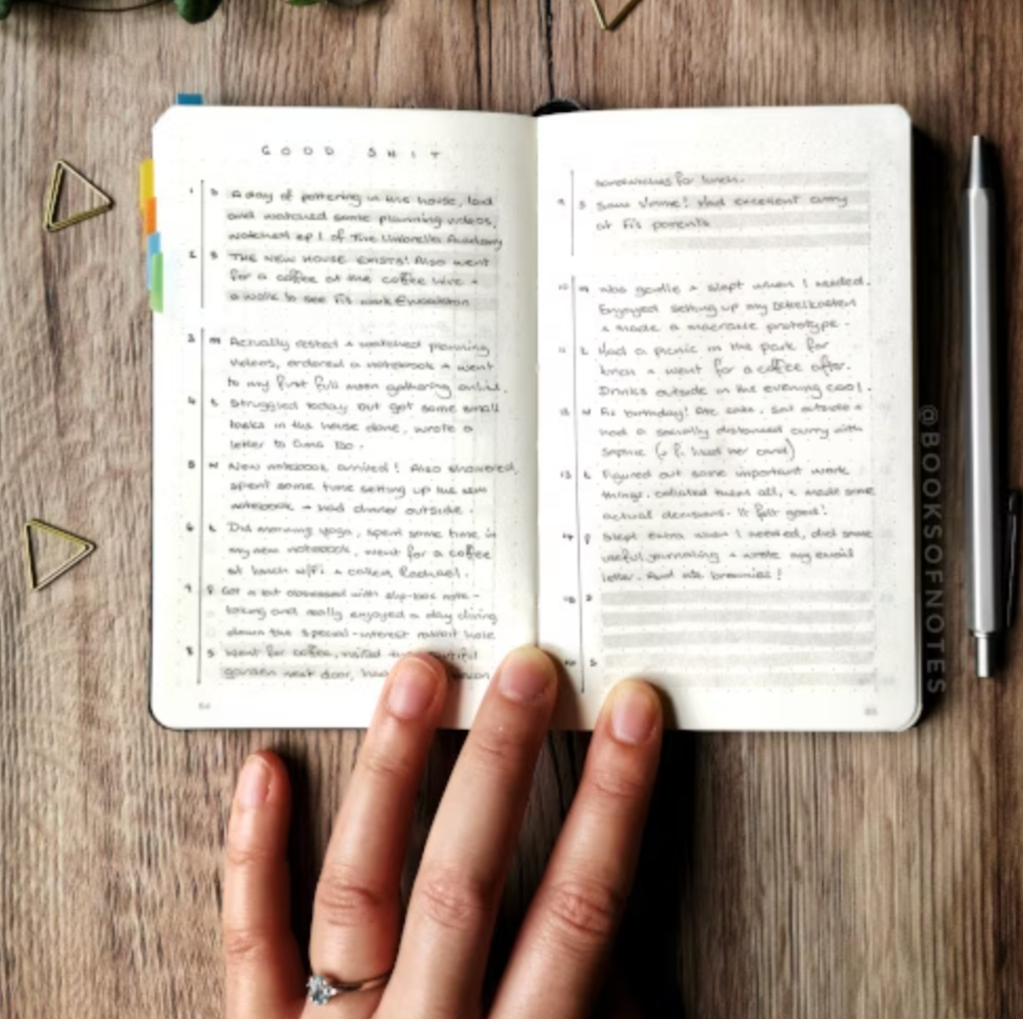 GOOD SHIT
1 S A day of pottering in the house, laid
and watched some planning videos,
watched ep 1 of The Umbrella Academy
2 S THE NEW HOUSE EXISTS! Also went
for a coffee at the coffee hive +
a walk to see Fi's work
3 M Actually rested + watched planning
videos, ordered a notebook + went
to my first full moon gathering online.
4 T Struggled today but got some small
tasks in the house done, wrote a
letter to
5 W New notebook arrived! Also showered,
spent some time setting up the new
notebook + had dinner outside.
6 T Did morning yoga, spent some time in
my new notebook, went for a coffee
at lunch w/Fi + called Rachael.
7 F Got a bit obsessed with slip-box note-
taking and really enjoyed a day diving
down the special-interest rabbit hole
8 S Went for coffee, visited the
garden next door, had
64
sandwiches for lunch.
9 S Had excellent curry
at Fi's parents
10 M Was gentle + slept when I needed.
Enjoyed setting up my zettelkasten
+ made a macrame prototype.
11 T Had a picnic in the park for
lunch + went for a coffee after.
Drinks outside in the evening cool.
12 W Fi's birthday! Ate cake, sat outside +
had a socially distanced curry with
Sophie (+ Fi liked her card)
13 T Figured out some important work
things, collated them all, + made some
actual decisions. It felt good!
14 F Slept extra when I needed, did some
useful journaling + wrote my email
letter. And ate brownies!
15 S
16 S
65
@BOOKSOFNOTES